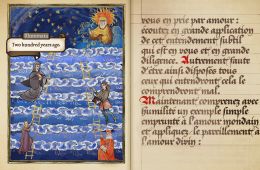 Illuminatio
Two hundred years ago.
vous en prie par amour :
écoutez en grande application
de cet entendement subtil
qui est en vous et en grande
diligence. Autrement faute
d'être ainsi disposé tous
ceux qui entendront cela le
comprendront mal.
Maintenant comprenez avec
humilité un exemple simple
emprunté à l'amour mondain
et appliquez-le pareillement à
l'amour divin :